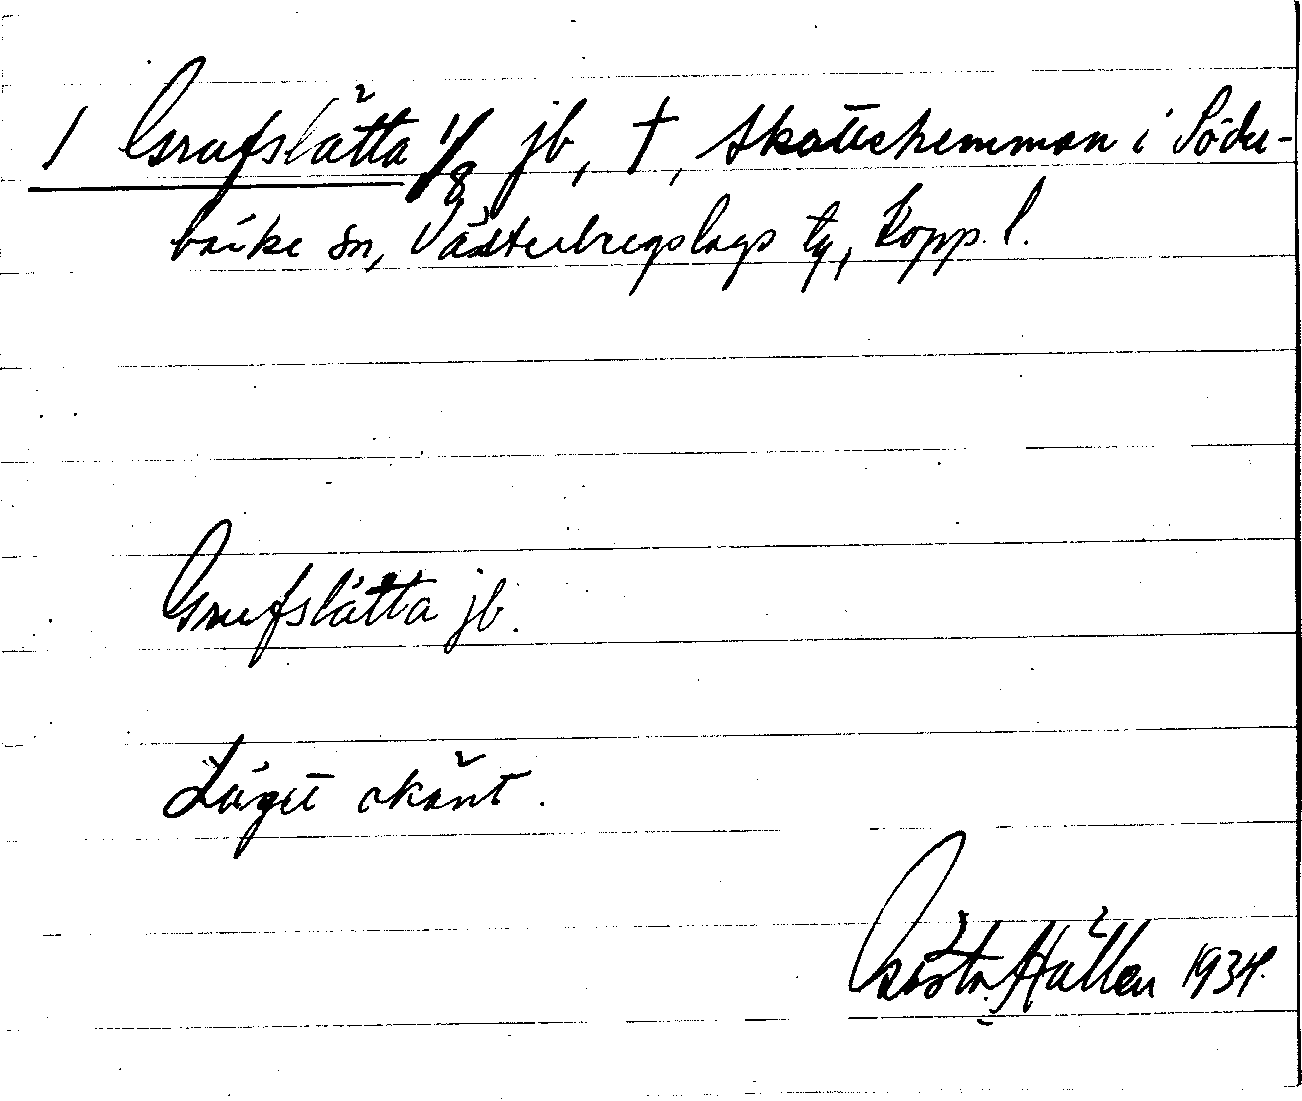 1 Grufslätta 1/8 jb, †, skattehemman i Söder-
bärke sn, Västerbergslags tg, Kopp. l.
Grufslätta jb.
Läget okänt.
Gösta Hällen 1934.